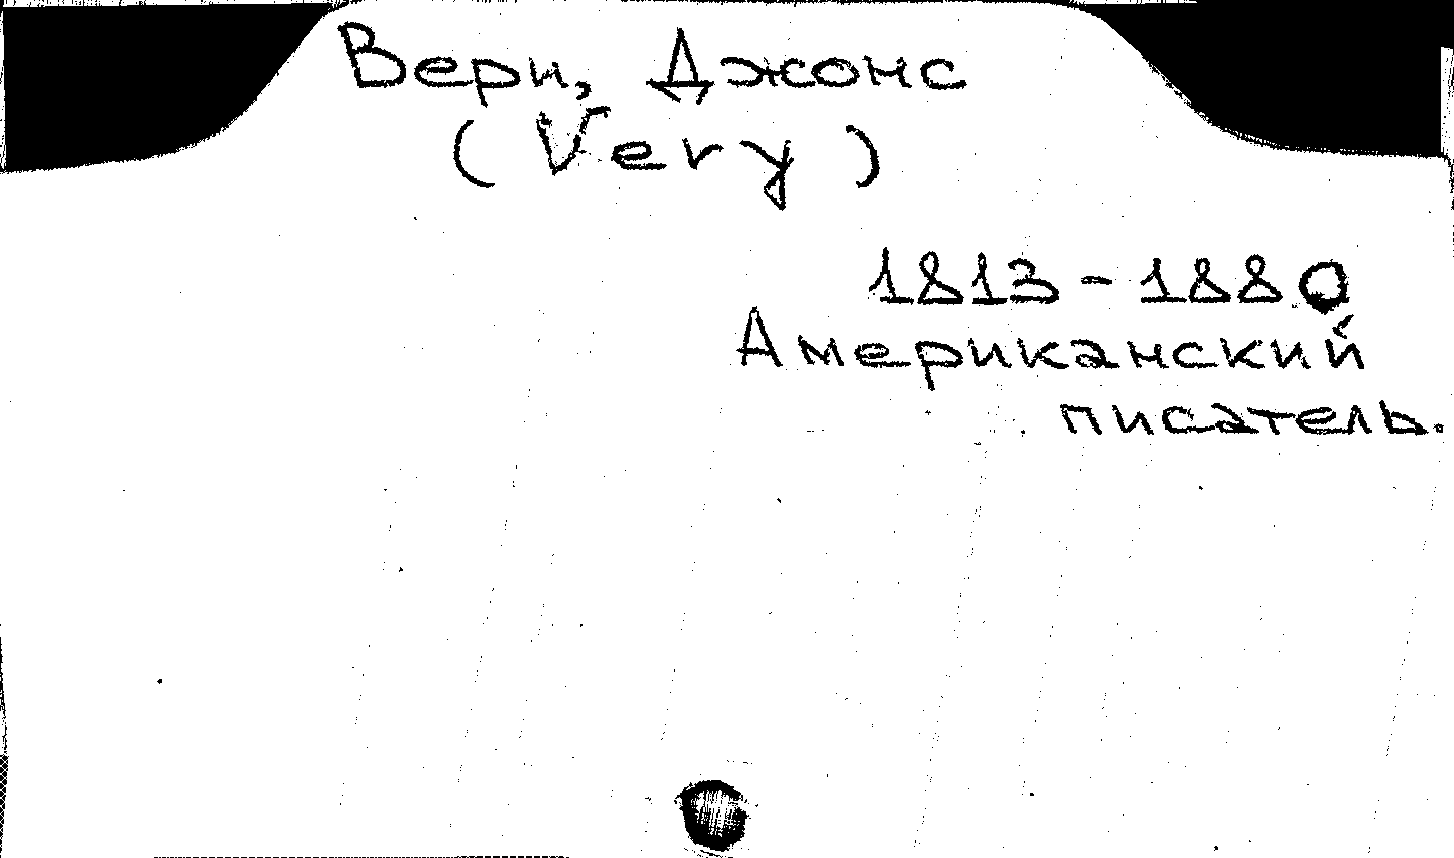 Вери, Джонс
(Very)
1813-1880
Американский
писатель.